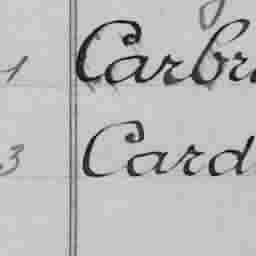 1 Carbr
3 Card